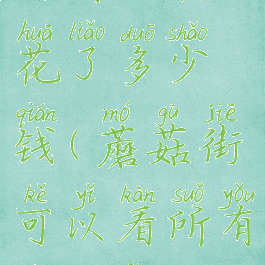 huā liǎo duō shǎo
花了多少
qián mó gū jiē
钱(蘑菇街
kě yǐ kàn suǒ yǒu
可以看所有